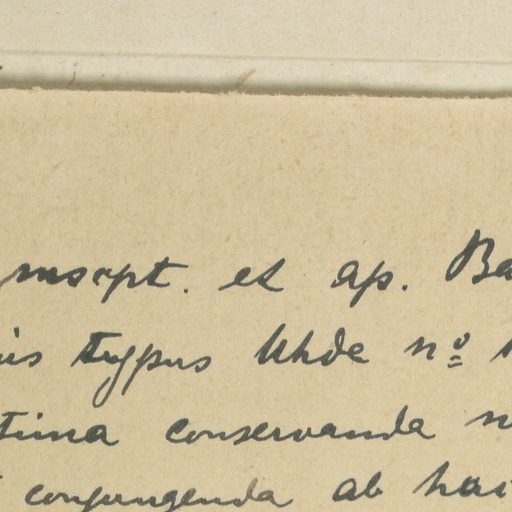 mscrpt. et ap. Ba
us typus Uhde nº
tima conservanda n
conjungenda ab hac